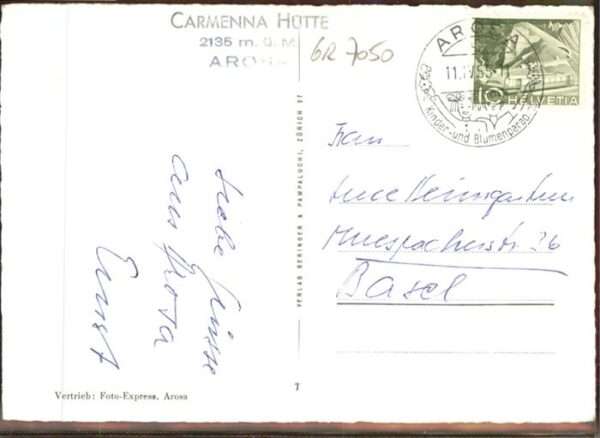 CARMENNA HÜTTE
2135 m. ü. M.
AROSA
GR 7050
AROSA
11.IV.55
Kinder- und Blumenparad
10 HELVETIA
Liebe Grüsse
aus Arosa
Ernst
VERLAG BERINGER & PAMPALUCHI, ZÜRICH 37
Frau
Weingarten
Muespacherstr 36
Basel
Vertrieb: Foto-Express, Arosa
7